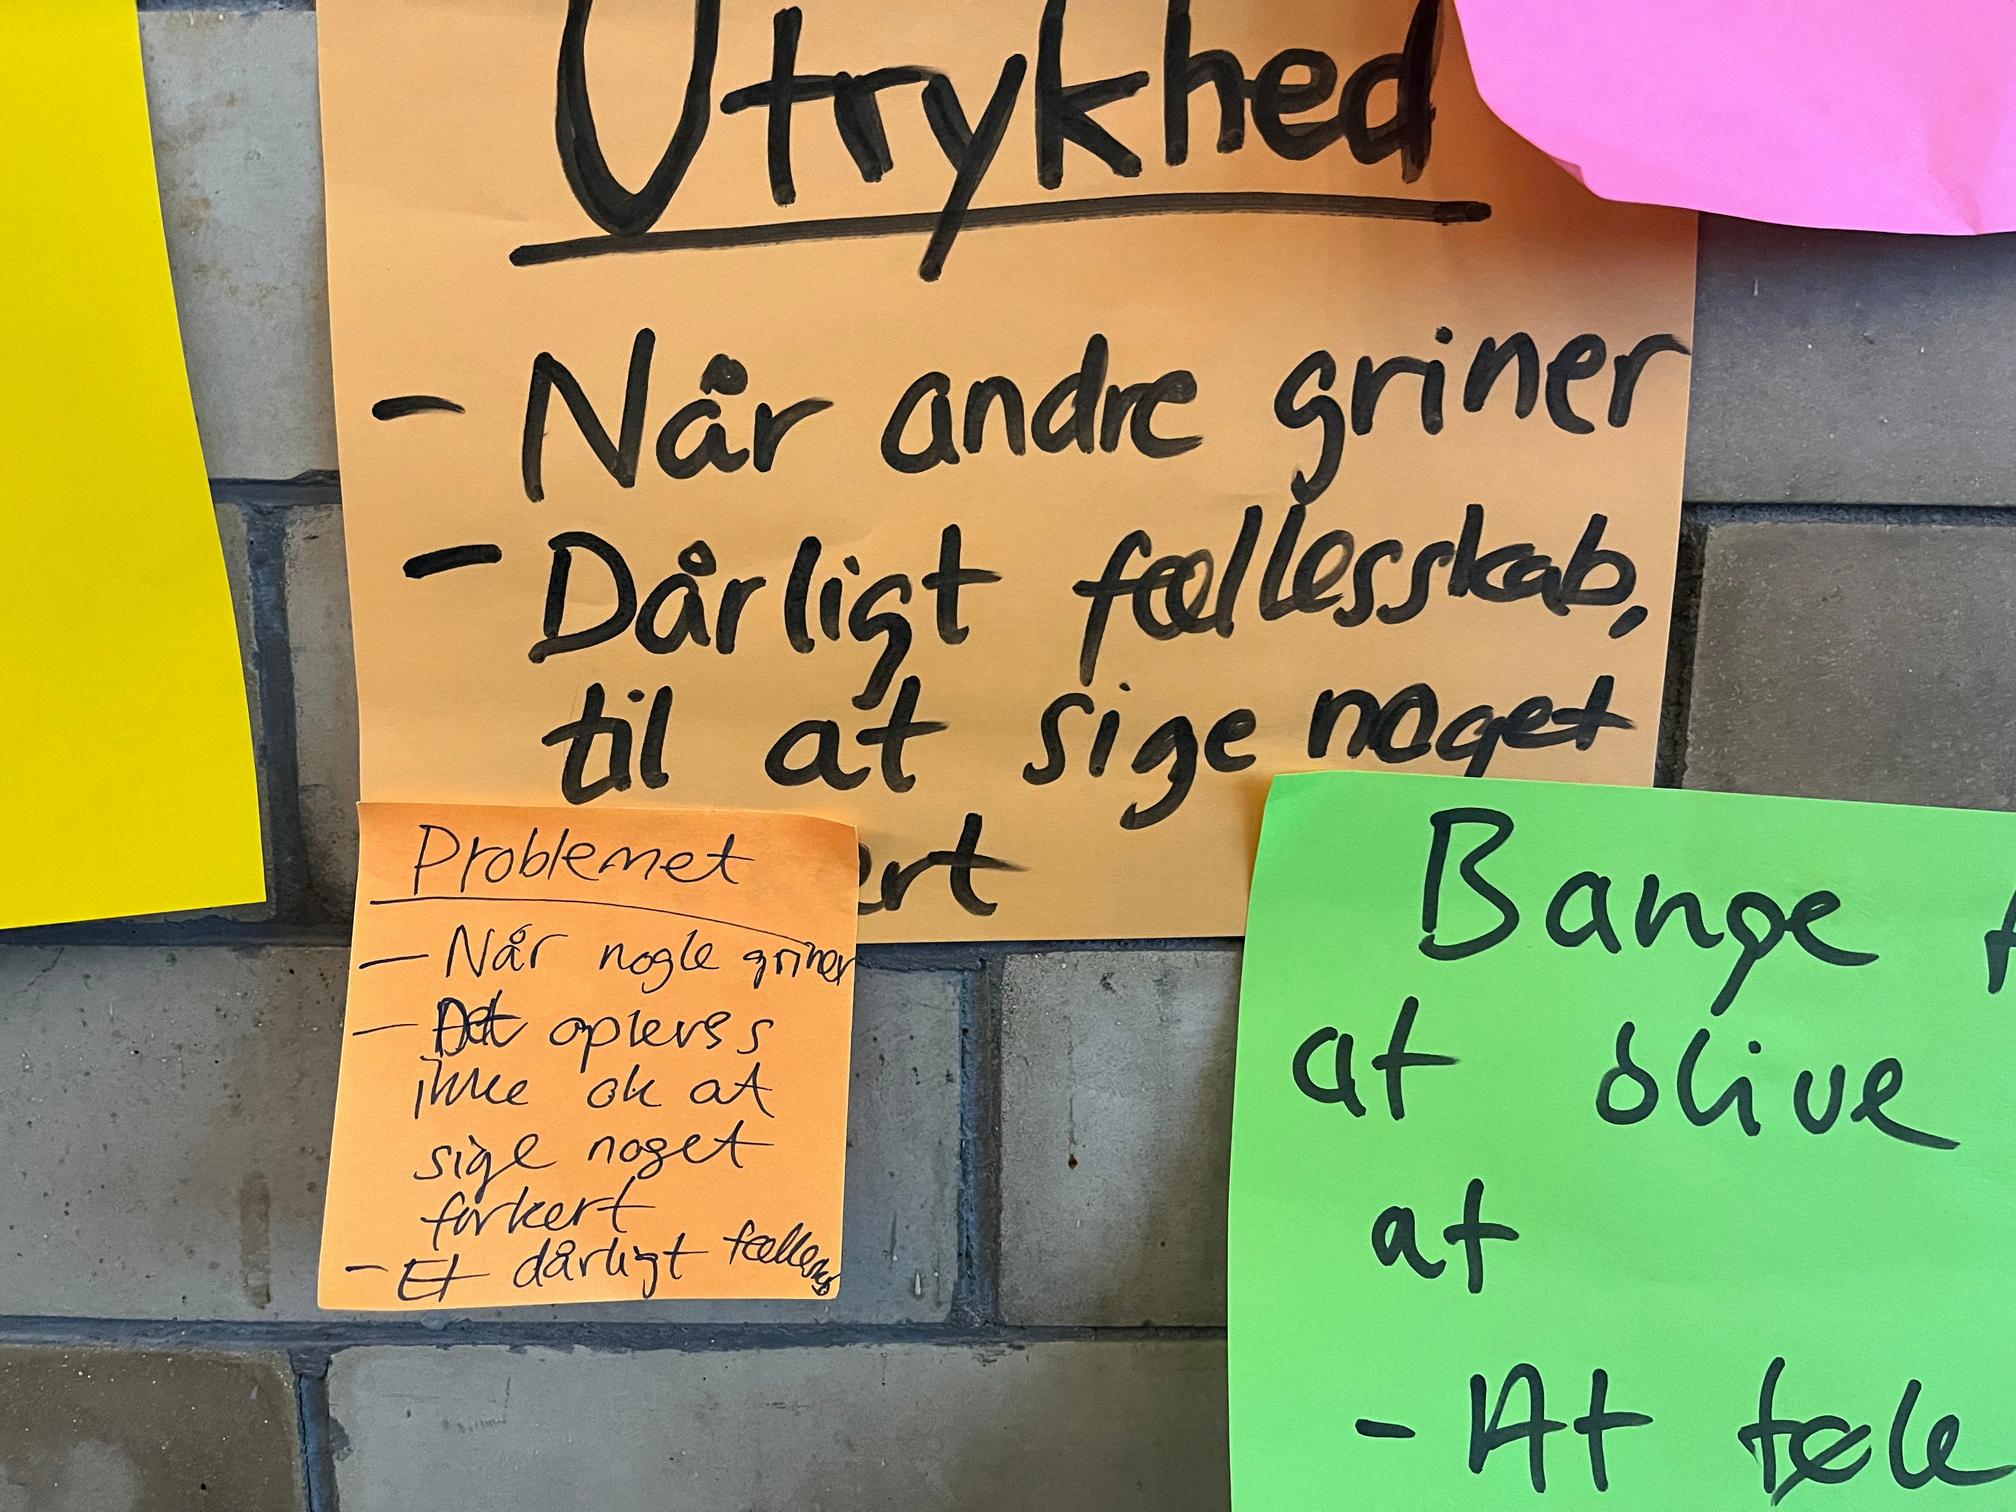 Utrykhed
- Når andre griner
- Dårligt fællesskab,
til at sige noget
ert
Problemet
- Når nogle griner
- Det opleves
ikke ok at
sige noget
forkert
- Et dårligt
Bange f
at blive
at
- At tale